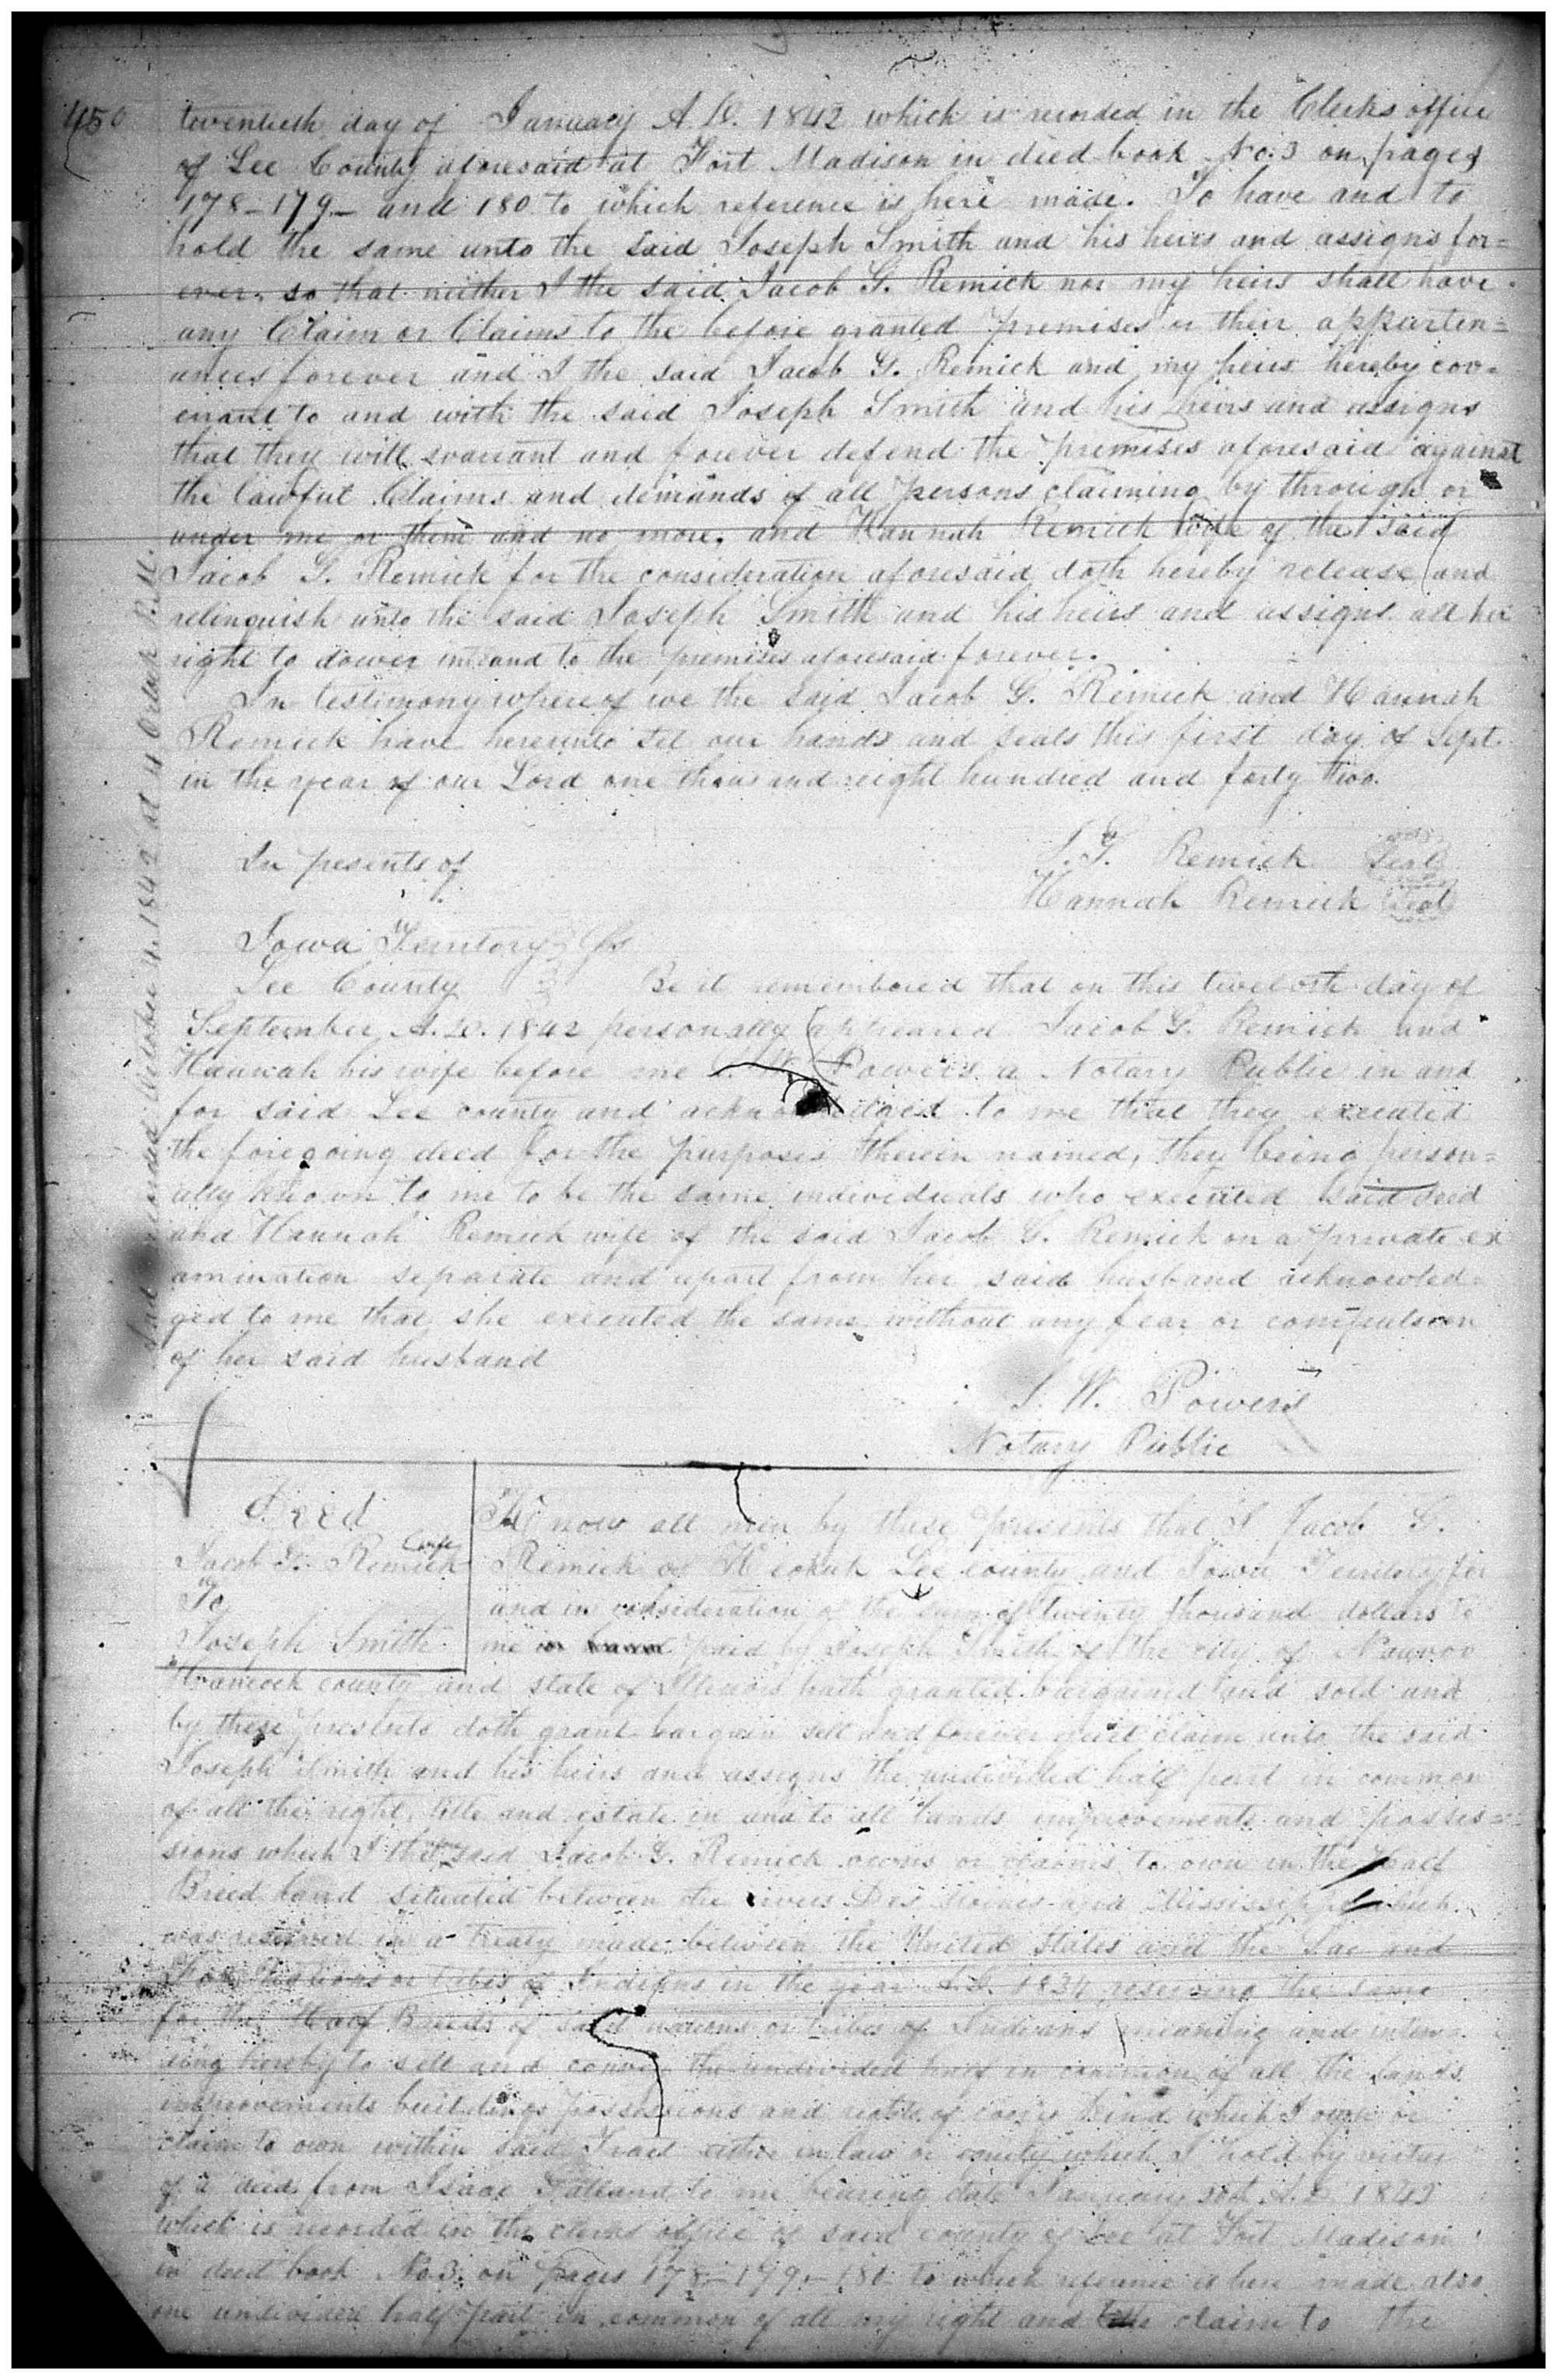 450
twentieth day of January A.D. 1842 which is recorded in the Clerks office
of Lee County aforesaid at Fort Madison in died book No. 3 on pages
178-179- and 180 to which reference is here made. To have and to
hold the same unto the said Joseph Smith and his heirs and assigns for=
ever, so that neither I the said Jacob G. Remick nor my heirs shall have
any Claim or Claims to the before granted premises or their appurten=
ances forever and I the said Jacob G. Remick and my heirs hereby cov=
enant to and with the said Joseph Smith and his heirs and assigns
that they will warrant and forever defend the premises aforesaid against
the lawful Claims and demands of all persons claiming by through or
under me or them and no more. and Hannah Remick wife of the said
Jacob G. Remick for the consideration aforesaid doth hereby release and
relinquish unto the said Joseph Smith and his heirs and assigns all her
right to dower in and to the premises aforesaid forever.
In testimony where of we the said Jacob G. Remick and Hannah
Remick have hereunto set our hands and seals this first day of Sept.
in the year of our Lord one thousand eight hundred and forty two.
In pesents of
J. G. Remick Seal
Hannah Remick Seal
Iowa Territory
Lee County Be it remembered that on this twelvth day of
September A.D. 1842 personally appeared Jacob G. Remick and
Hannah his wife before me Powers a Notary Public in and
for said Lee county and to me that they executed
the foregoing deed for the purposes therein named, they being person=
ally known to me to be the same individuals who executed said deed
and Hannah Remick wife of the said Jacob G. Remick on a private ex
amination separate and apart from her said husband acknowled=
ged to me that she executed the same without any fear or compulsion
of her said husband
J. W. Powers
Notary Public
recorded October 4. 1842 at 4 Oclock P.M.
Deed
Jacob G. Remick & wife
To
Joseph Smith
Know all men by these presents that I Jacob G.
Remick of Keokuk Lee county and Iowa Territory for
and in consideration of the sum of twenty thousand dollars to
me paid by Joseph Smith of the city of Nauvoo
Hancock county and state of Illinois hath granted bargained and sold and
by these presents doth grant bargain sell and forever quit claim unto the said
Joseph Smith and his heirs and assigns the undivided half part in common
of all the right, title and estate in and to all lands improvements and posses=
sions which I the said Jacob G. Remick owns or claims to own in the Half
Breed land situated between the rivers Des Moines and Mississippi which
was reserved in a treaty made between the United States and the Sac and
Fox Nations or tribes of Indians in the year A.D. 1834 reserving the same
for the Half Breeds of said nations or tribes of Indians meaning and inten=
ding hereby to sell and convey the undivided half in common of all the lands
improvements buildings possessions and rights of every kind which I own or
claim to own within said Tract either in law or equity which I hold by virtue
of a deed from Isaac Galland to me bearing date January A.D. 1842
which is recorded in the clerks office of said county of Lee at Fort Madison
in deed book No. 3. on pages 178-179-180 to which reference is here made also
one undivided half part in common of all my right and claim to the